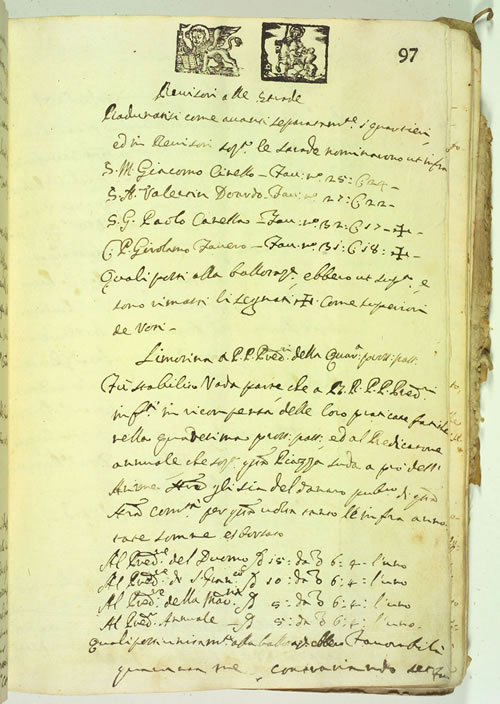 97
Revisori alle Strade
Radunatisi come avanti separatam.te i quartieri
ed in Revisori sop.a le strade nominarono ut infra
S. M. Giacomo Civello - Fau: n.o 25: C 24 -
S. A. Valerin Donrdo. Fau: n.o 27: C 22 -
S. G. Paolo Canella - Fau: n.o 32: C 17 -
C. P. Girolamo Favero - Fau: n.o 31: C 18:
Quali posti alla ballotaz.e ebbero ut sup.a, e
sono rimasti li segnati Come superiori
de Voti -
Limosina a P. P. Pred.ri della Quar.a pross: pass:
Fù stabilito Vada parte che a R. R. P. P. Pred.ri
inf.ti in ricompensa delle loro praticate fatiche
nella quadresima pross: pass: ed al Predicatore
annuale che sop.a q.ta Piazza suda a prò dell'
Anime gli sia del danaro publico di q.ta
com.tà per q.ta volta tanto le infra anno
tate somme esborsato
Al Pred.re del Duomo 15: da 6: 4 - l'uno
Al Pred.re di S. Fran.co 10: da 6: 4: l'uno
Al Pred.re della 5: da 6: 4: l'uno
Al Pred.re Annuale 5: da 6: 4: l'uno.
Quali posti unitam.te alla ballotaz.e ebbero Favorabili